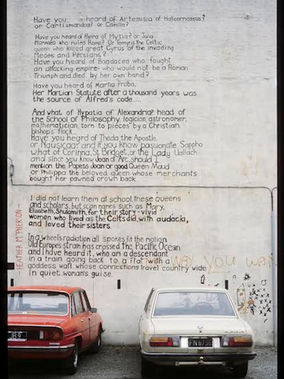 Have you heard of Artemisia of Halicarnassis?
or Cartismandua? or Camilla?
Have you heard of Hiera of Mysia? or Julia
Mamaea who ruled Rome? Or Tomyris the Celtic
queen who killed great Cyrus of the invading
Medes and Persians?
Have you heard of Boadacea who fought
an attacking empire who would not be a Roman
Triumph and died by her own hand?
Have you heard of Martia Proba.
Her Martian Statute after a thousand years was
the source of Alfred's code....
And what of Hypatia of Alexandria? head of
the School of Philosophy, logician, astronomer,
mathematician torn to pieces by a Christian
bishop's flock.
Have you heard of Theda the Apostle,
or Nausicaa? and if you know passionate Sappho
what of Corinna, St Bridget, or the Lady Uallach.
and since you know Joan of Arc, should I
mention the Popess Joan or good Queen Maud
or Philippa the beloved queen whose merchants
bought her pawned crown back.
I did not learn them at school these queens
and scholars but scan names such as Mary,
Elizabeth, Shulamith, for their story - vivid
women who lived as the Celts did, with audacia,
and loved their sisters.
In a wheel's radiation all spokes fit the notion
Old Europe's strain has crossed the Pacific Ocean
and I have heard it, who am a descendant
in a train going back to a flat with a
goddess wall whose connections travel country wide
in quiet woman's guise.
HEATHER McPHERSON